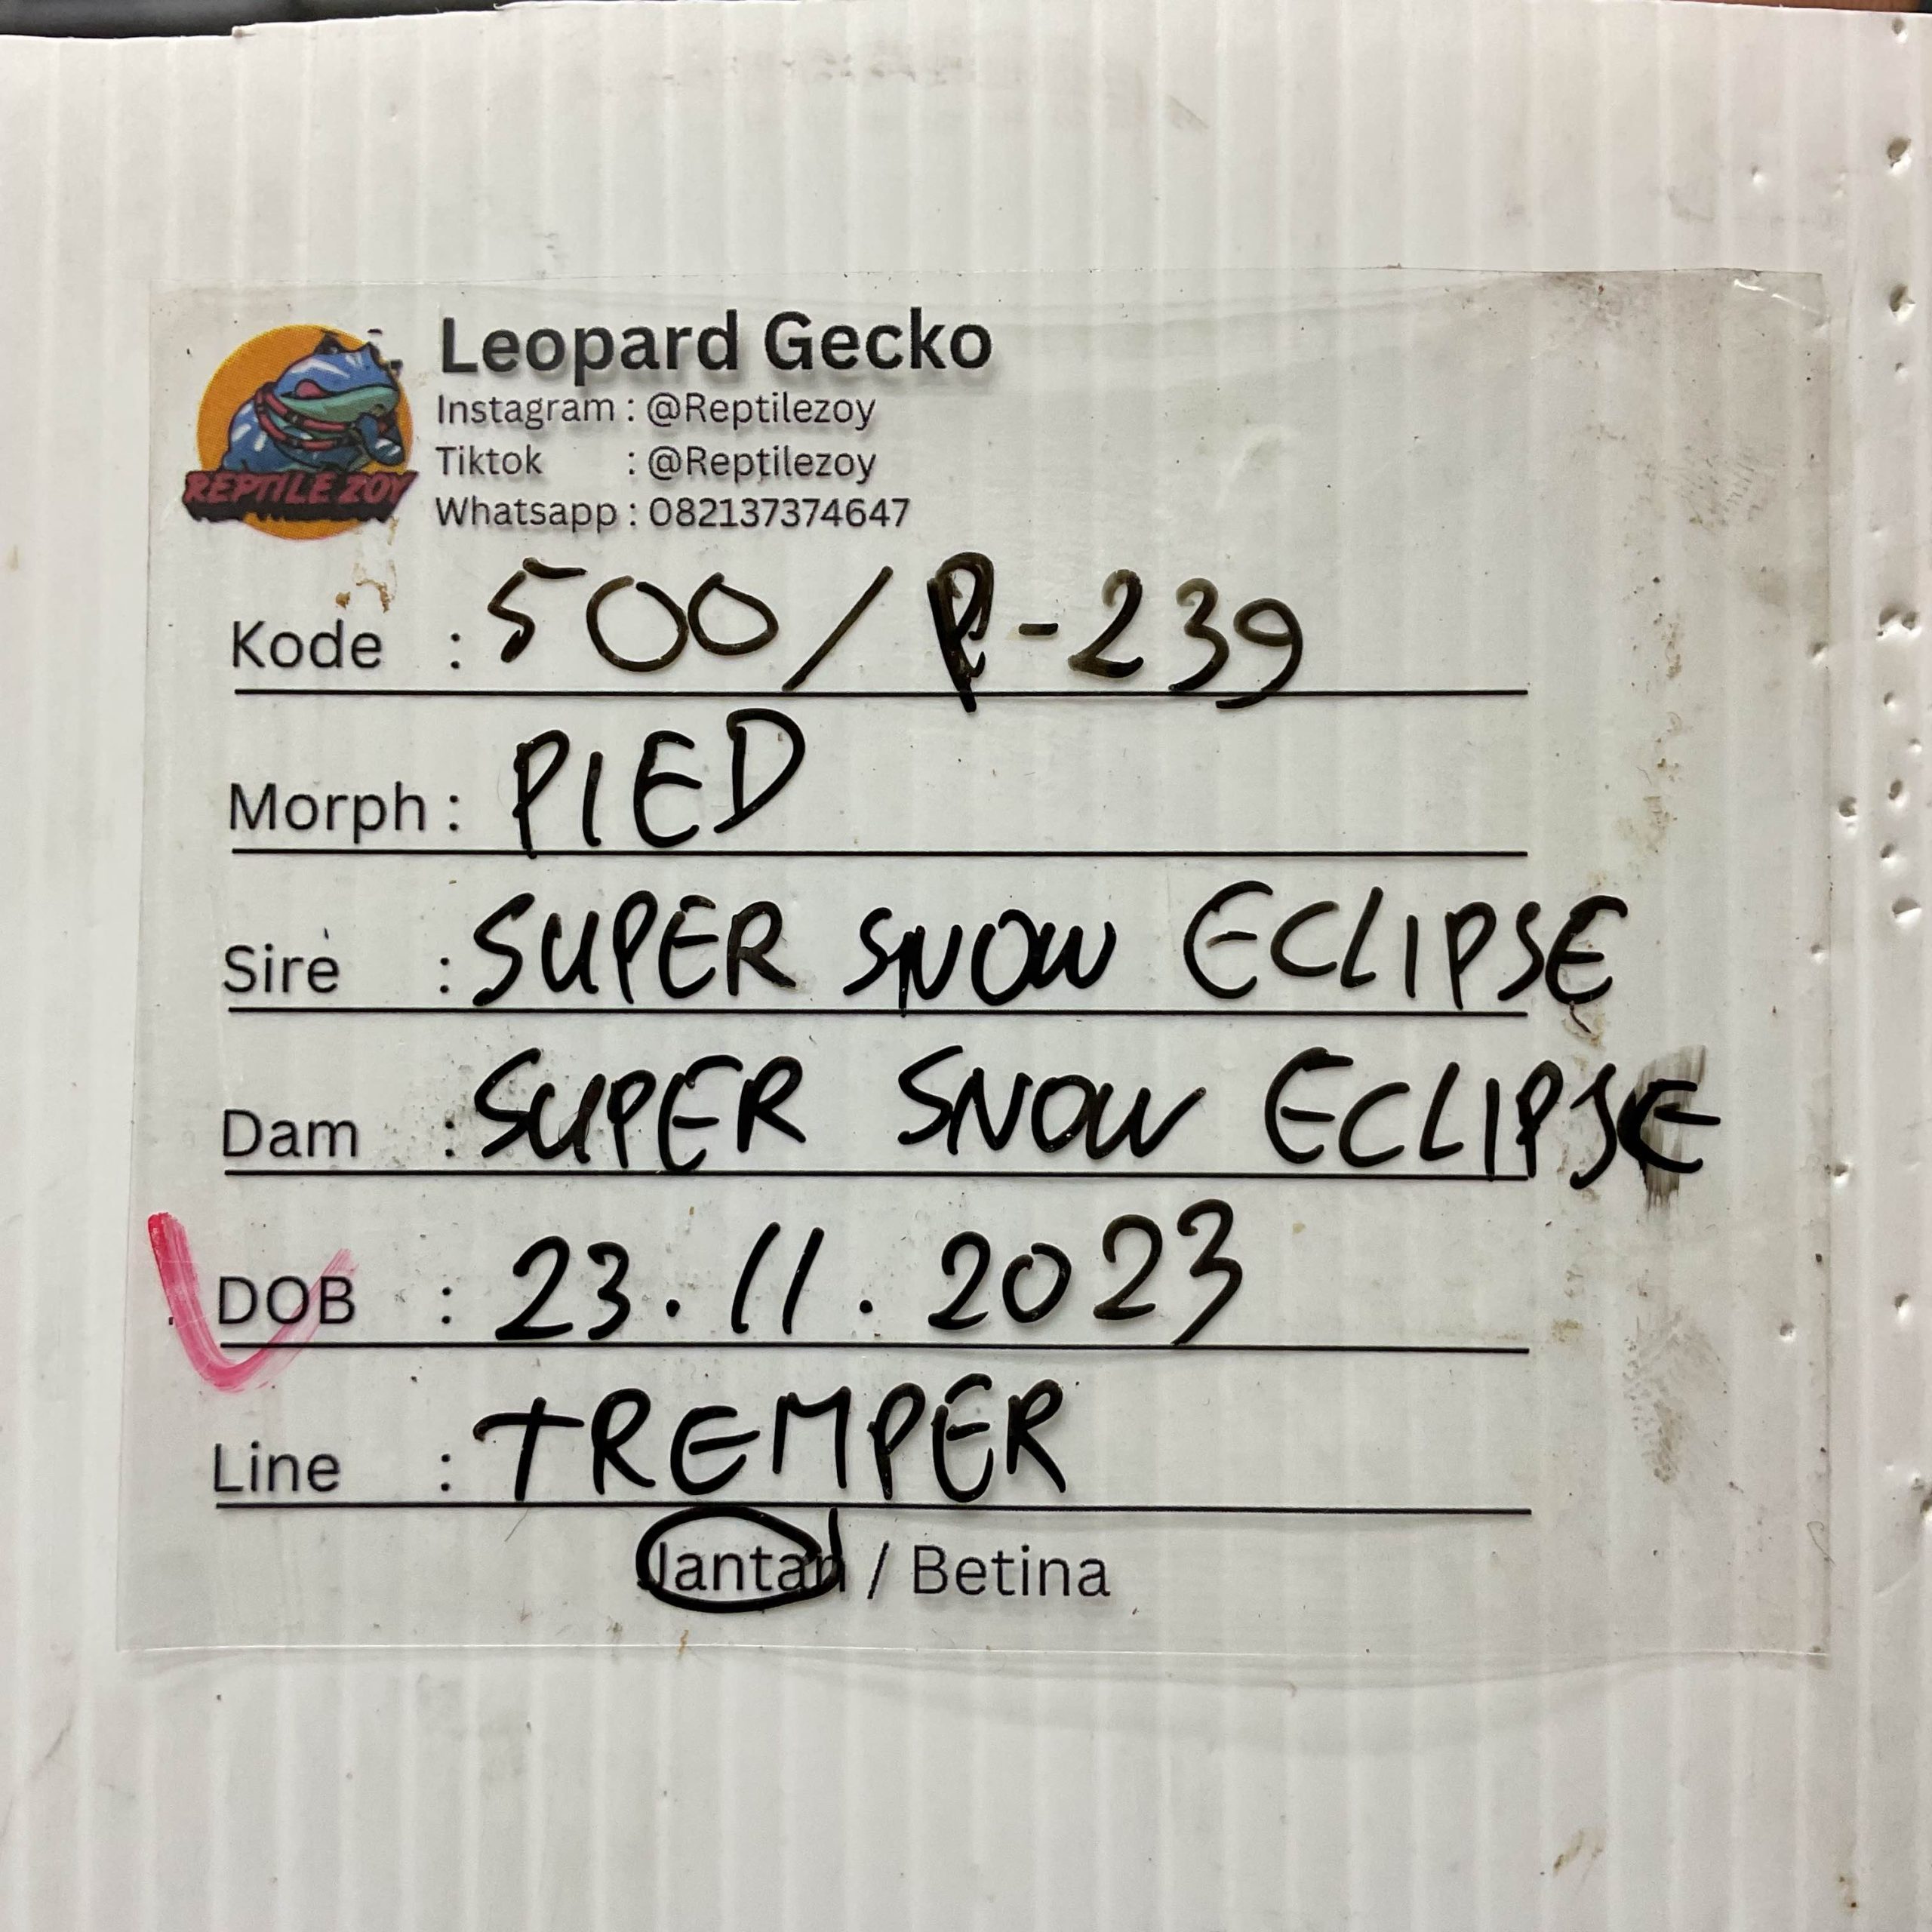 Leopard Gecko
Instagram : @Reptilezoy
Tiktok : @Reptilezoy
Whatsapp : 082137374647
REPTILE ZOY
Kode : 500/P-239
Morph : PIED
Sire : SUPER SNOW ECLIPSE
Dam : SUPER SNOW ECLIPSE
DOB : 23.11.2023
Line : TREMPER
Jantan / Betina